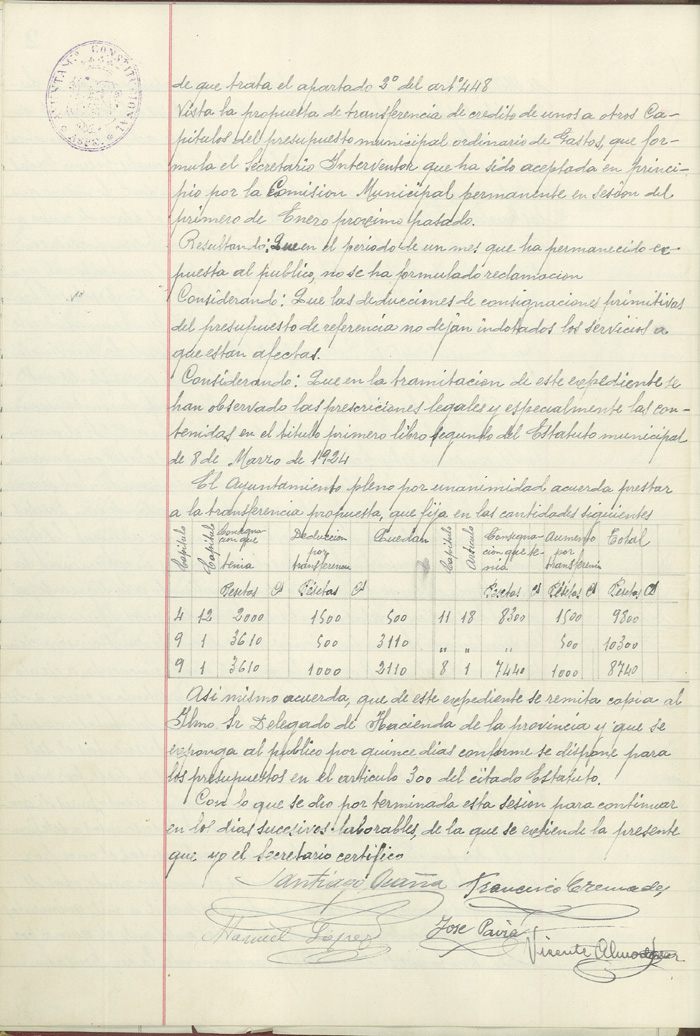 AYUNTAMTO CONSTITUCIONAL
de que trata el apartado 2º del artº 448
Vista la propuesta de transferencia de credito de unos a otros Ca-
pitulos del presupuesto municipal ordinario de Gastos, que for-
mula el Secretario Interventor que ha sido aceptada en princi-
pio por la Comision Municipal permanente en sesion del
primero de Enero proximo pasado.
Resultando: Que en el periodo de un mes que ha permanecido ex-
puesta al publico, no se ha formulado reclamacion
Considerando: Que las deducciones de consignaciones primitivas
del presupuesto de referencia no dejan indotados los servicios a
que estan afectas.
Considerando: Que en la tramitacion de este expediente se
han observado las prescriciones legales y especialmente las con-
tenidas en el titulo primero libro segundo del Estatuto municipal
de 8 de Marzo de 1924
El Ayuntamiento pleno por unanimidad acuerda prestar
a la transferencia propuesta, que fija en las cantidades siguientes
Capitulo Capitulo Consigna- cion que tenia Deduccion por transferencia Quedan Capitulo Articulo Consigna- cion que te- nia Aumento por transferencia Total
Pesetas Cs Pesetas Cs Pesetas Cs Pesetas Cs Pesetas Cs
4 12 2000 1500 500 11 18 8300 1500 9800
9 1 3610 500 3110 " " " 500 10300
9 1 3610 1000 2110 8 1 7440 1000 8740
Asi mismo acuerda, que de este expediente se remita copia al
Ilmo. Sr Delegado de Hacienda de la provincia y que se
exponga al publico por quince dias conforme se dispone para
los presupuestos en el articulo 300 del citado Estatuto.
Con lo que se dio por terminada esta sesion para continuar
en los dias sucesivos laborables, de la que se extiende la presente
que yo el Secretario certifico
Santiago Francisco Cremades
Manuel Lopez Jose Pavia
Vicente